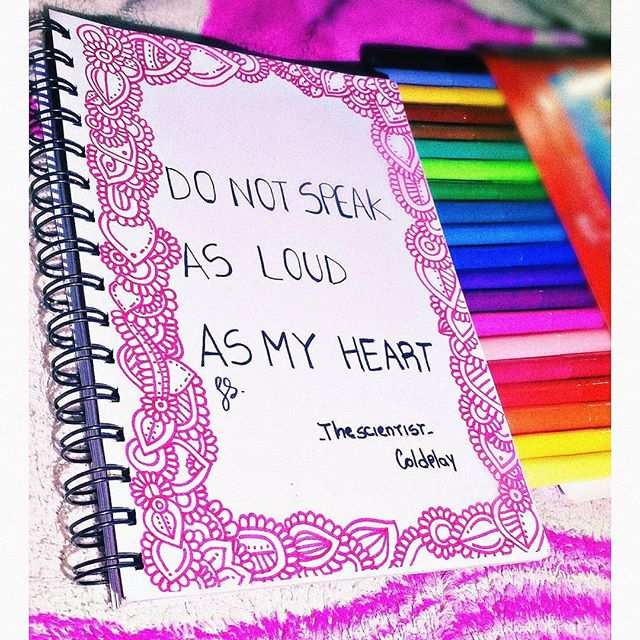 DO NOT SPEAK
AS LOUD
AS MY HEART
_The scientist_
Coldplay